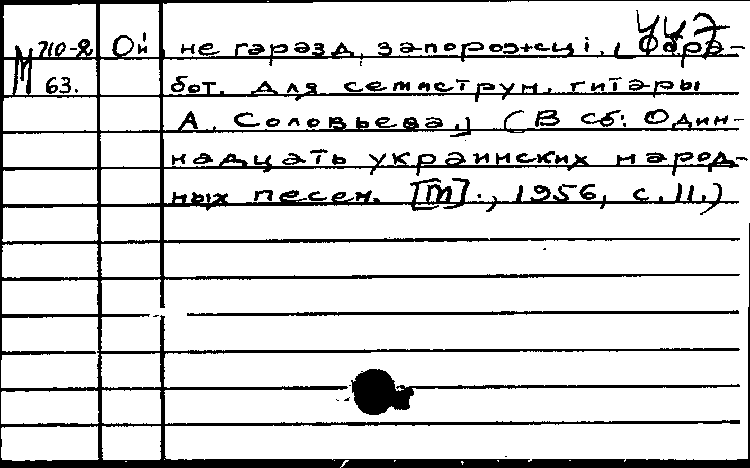 447
М 710-2 Ой, не гаразд, запорожці. [Обра-
63. бот. для семиструн. гитары
А. Соловьева.] (В сб: Один-
надцать украинских народ-
ных песен. [М]., 1956, с. 11.)